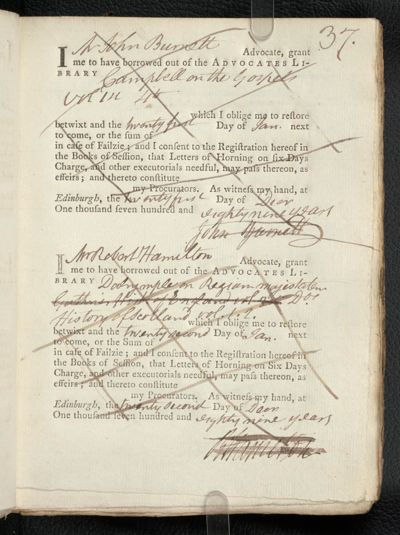 37.
I Mr John Burnett Advocate, grant
me to have borrowed out of the ADVOCATES LI-
BRARY Campbell on the Gospels
vol
which I oblige me to reſtore
betwixt and the twenty first Day of Jan. next
to come, or the sum of
in caſe of Failzie; and I conſent to the Regiſtration hereof in
the Books of Seſſion, that Letters of Horning on ſix Days
Charge, and other executorials needful, may paſs thereon, as
effeirs; and thereto conſtitute
my Procurators. As witneſs my hand, at
Edinburgh, the twenty first Day of Decr
One thouſand ſeven hundred and eighty nine years
John Burnett
I Mr Robert Hamilton Advocate, grant
me to have borrowed out of the ADVOCATES LI-
BRARY Dalrymple on Regiam majestatem
of England vol
History of Scotland vol.
which I oblige me to reſtore
betwixt and the twenty second Day of Jan. next
to come, or the Sum of
in caſe of Failzie; and I conſent to the Regiſtration hereof in
the Books of Seſſion, that Letters of Horning on Six Days
Charge, and other executorials needful, may paſs thereon, as
effeirs; and thereto conſtitute
my Procurators. As witneſs my hand, at
Edinburgh, the twenty second Day of Decr
One thouſand ſeven hundred and eighty nine years